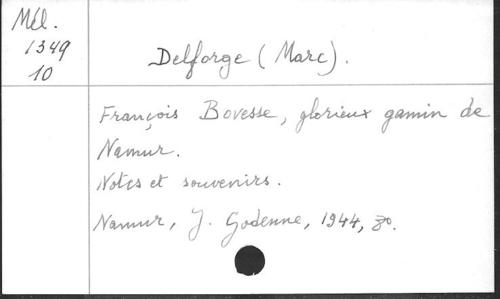 Mél.
1349
10
Delforge (Marc).
François Bovesse, glorieux gamin de
Namur.
Notes et souvenirs.
Namur, J. Godenne, 1944,